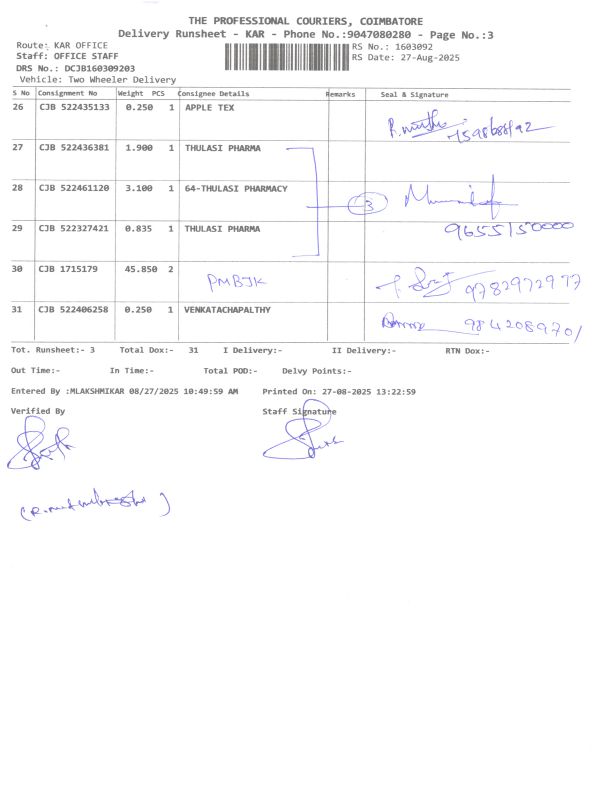 THE PROFESSIONAL COURIERS, COIMBATORE
Delivery Runsheet - KAR - Phone No.:9047080280 - Page No.:3
Route: KAR OFFICE RS No.: 1603092
Staff: OFFICE STAFF RS Date: 27-Aug-2025
DRS No.: DCJB160309203
Vehicle: Two Wheeler Delivery
S No Consignment No Weight PCS Consignee Details Remarks Seal & Signature
26 CJB 522435133 0.250 1 APPLE TEX
27 CJB 522436381 1.900 1 THULASI PHARMA
28 CJB 522461120 3.100 1 64-THULASI PHARMACY 3
29 CJB 522327421 0.835 1 THULASI PHARMA 9655150000
30 CJB 1715179 45.850 2 PMBJK 9782972977
31 CJB 522406258 0.250 1 VENKATACHAPALTHY 9842089701
Tot. Runsheet:- 3 Total Dox:- 31 I Delivery:- II Delivery:- RTN Dox:-
Out Time:- In Time:- Total POD:- Delvy Points:-
Entered By :MLAKSHMIKAR 08/27/2025 10:49:59 AM Printed On: 27-08-2025 13:22:59
Verified By Staff Signature